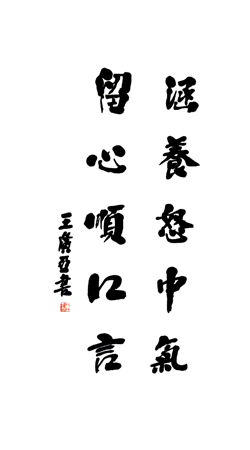 涵養怒中氣
留心順口言
王廣亞書